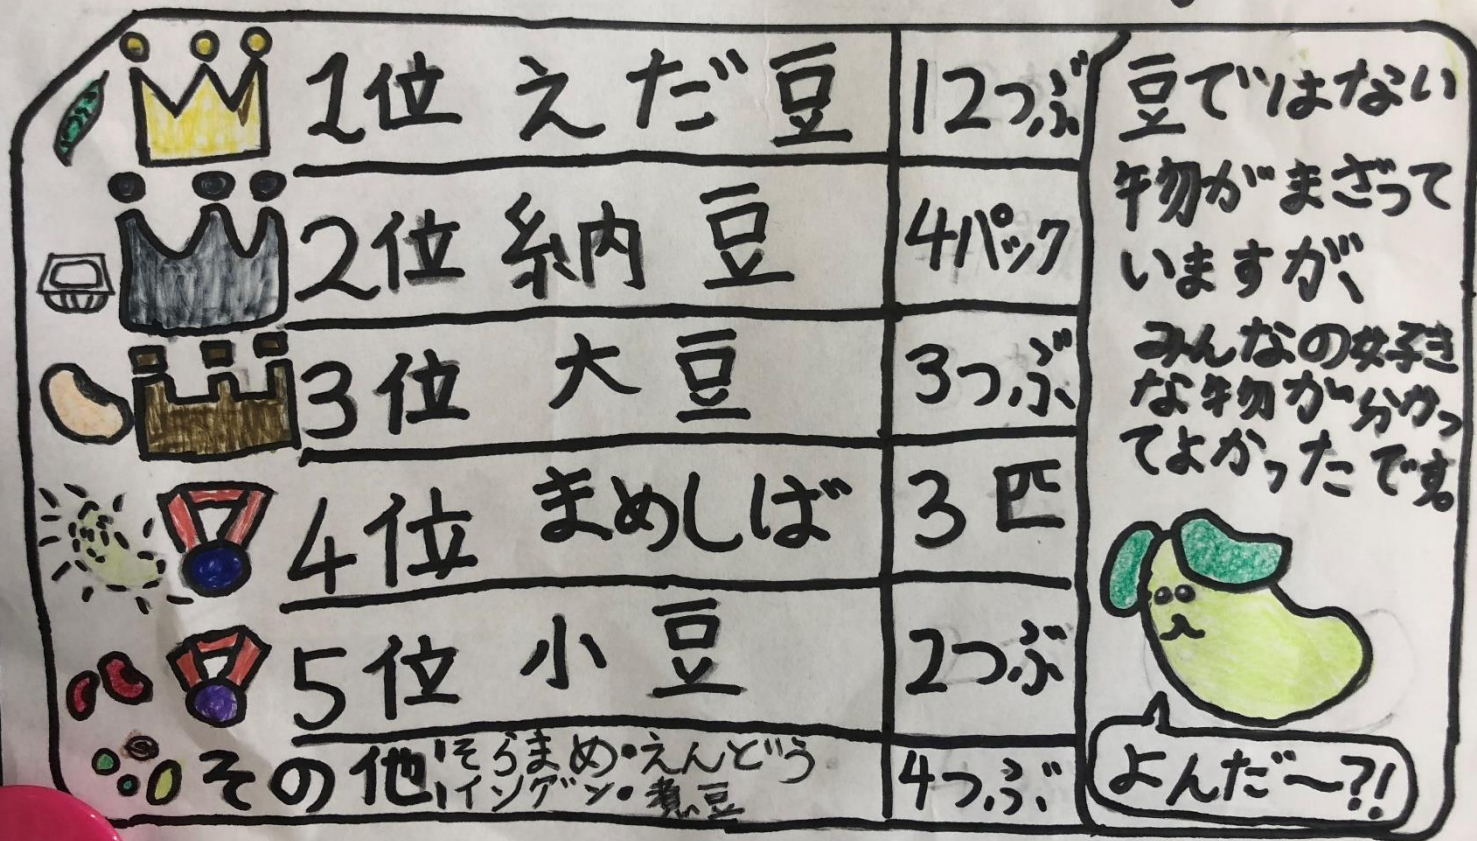 1位 えだ豆 12つぶ
2位 納豆 4パック
3位 大豆 3つぶ
4位 まめしば 3匹
5位 小豆 2つぶ
その他 そらまめ・えんどう
インゲン・煮豆
4つぶ
豆ではない
物がまざって
いますが、
みんなの好き
な物が分かっ
てよかったです。
よんだ〜?!